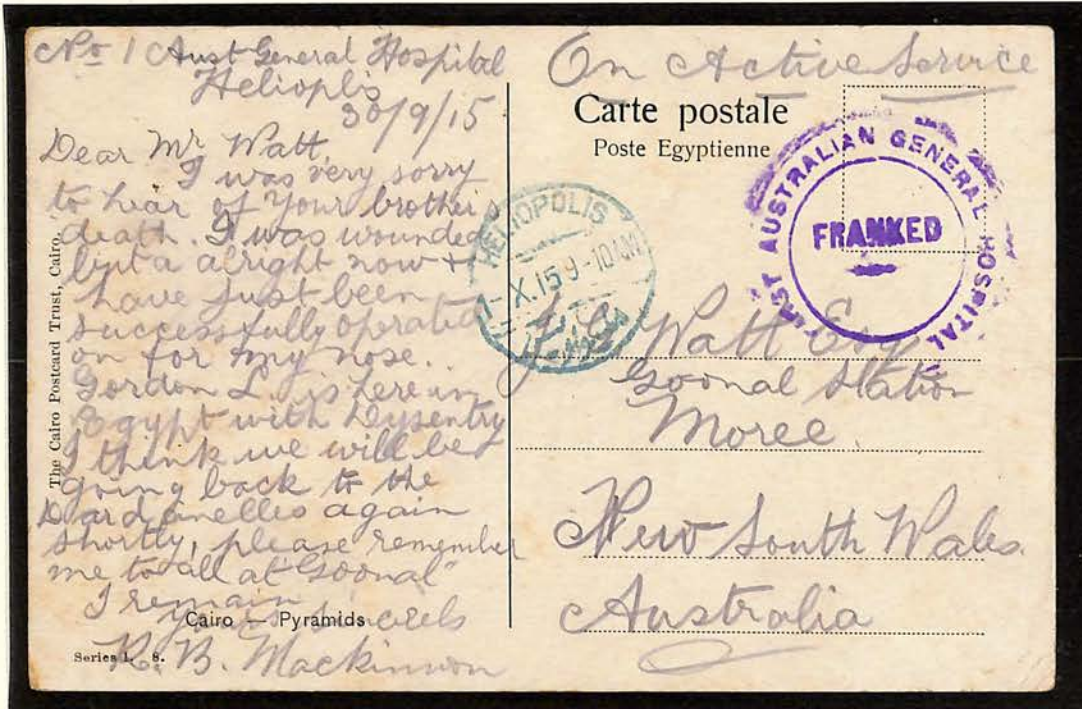 No 1 Aust General Hospital
Helioplis
30/9/15
Dear Mr Watt,
I was very sorry
to hear of your brother's
death. I was wounded
but a alright now +
have just been
successfully operated
on for my nose.
Gordon L. is here in
Egypt with Dysentry
I think we will be
going back to the
Dardanelles again
shortly, please remember
me to all at "Goonal"
I remain
Yours Sincerels
R. B. Mackinnon
Cairo — Pyramids
Series 1. 8.
The Cairo Postcard Trust, Cairo.
On Active Service
Carte postale
Poste Egyptienne
FIRST AUSTRALIAN GENERAL HOSPITAL
FRANKED
HELIOPOLIS
X.15 9-10AM
Watt Esq
Goonal Station
Moree.
New South Wales.
Australia